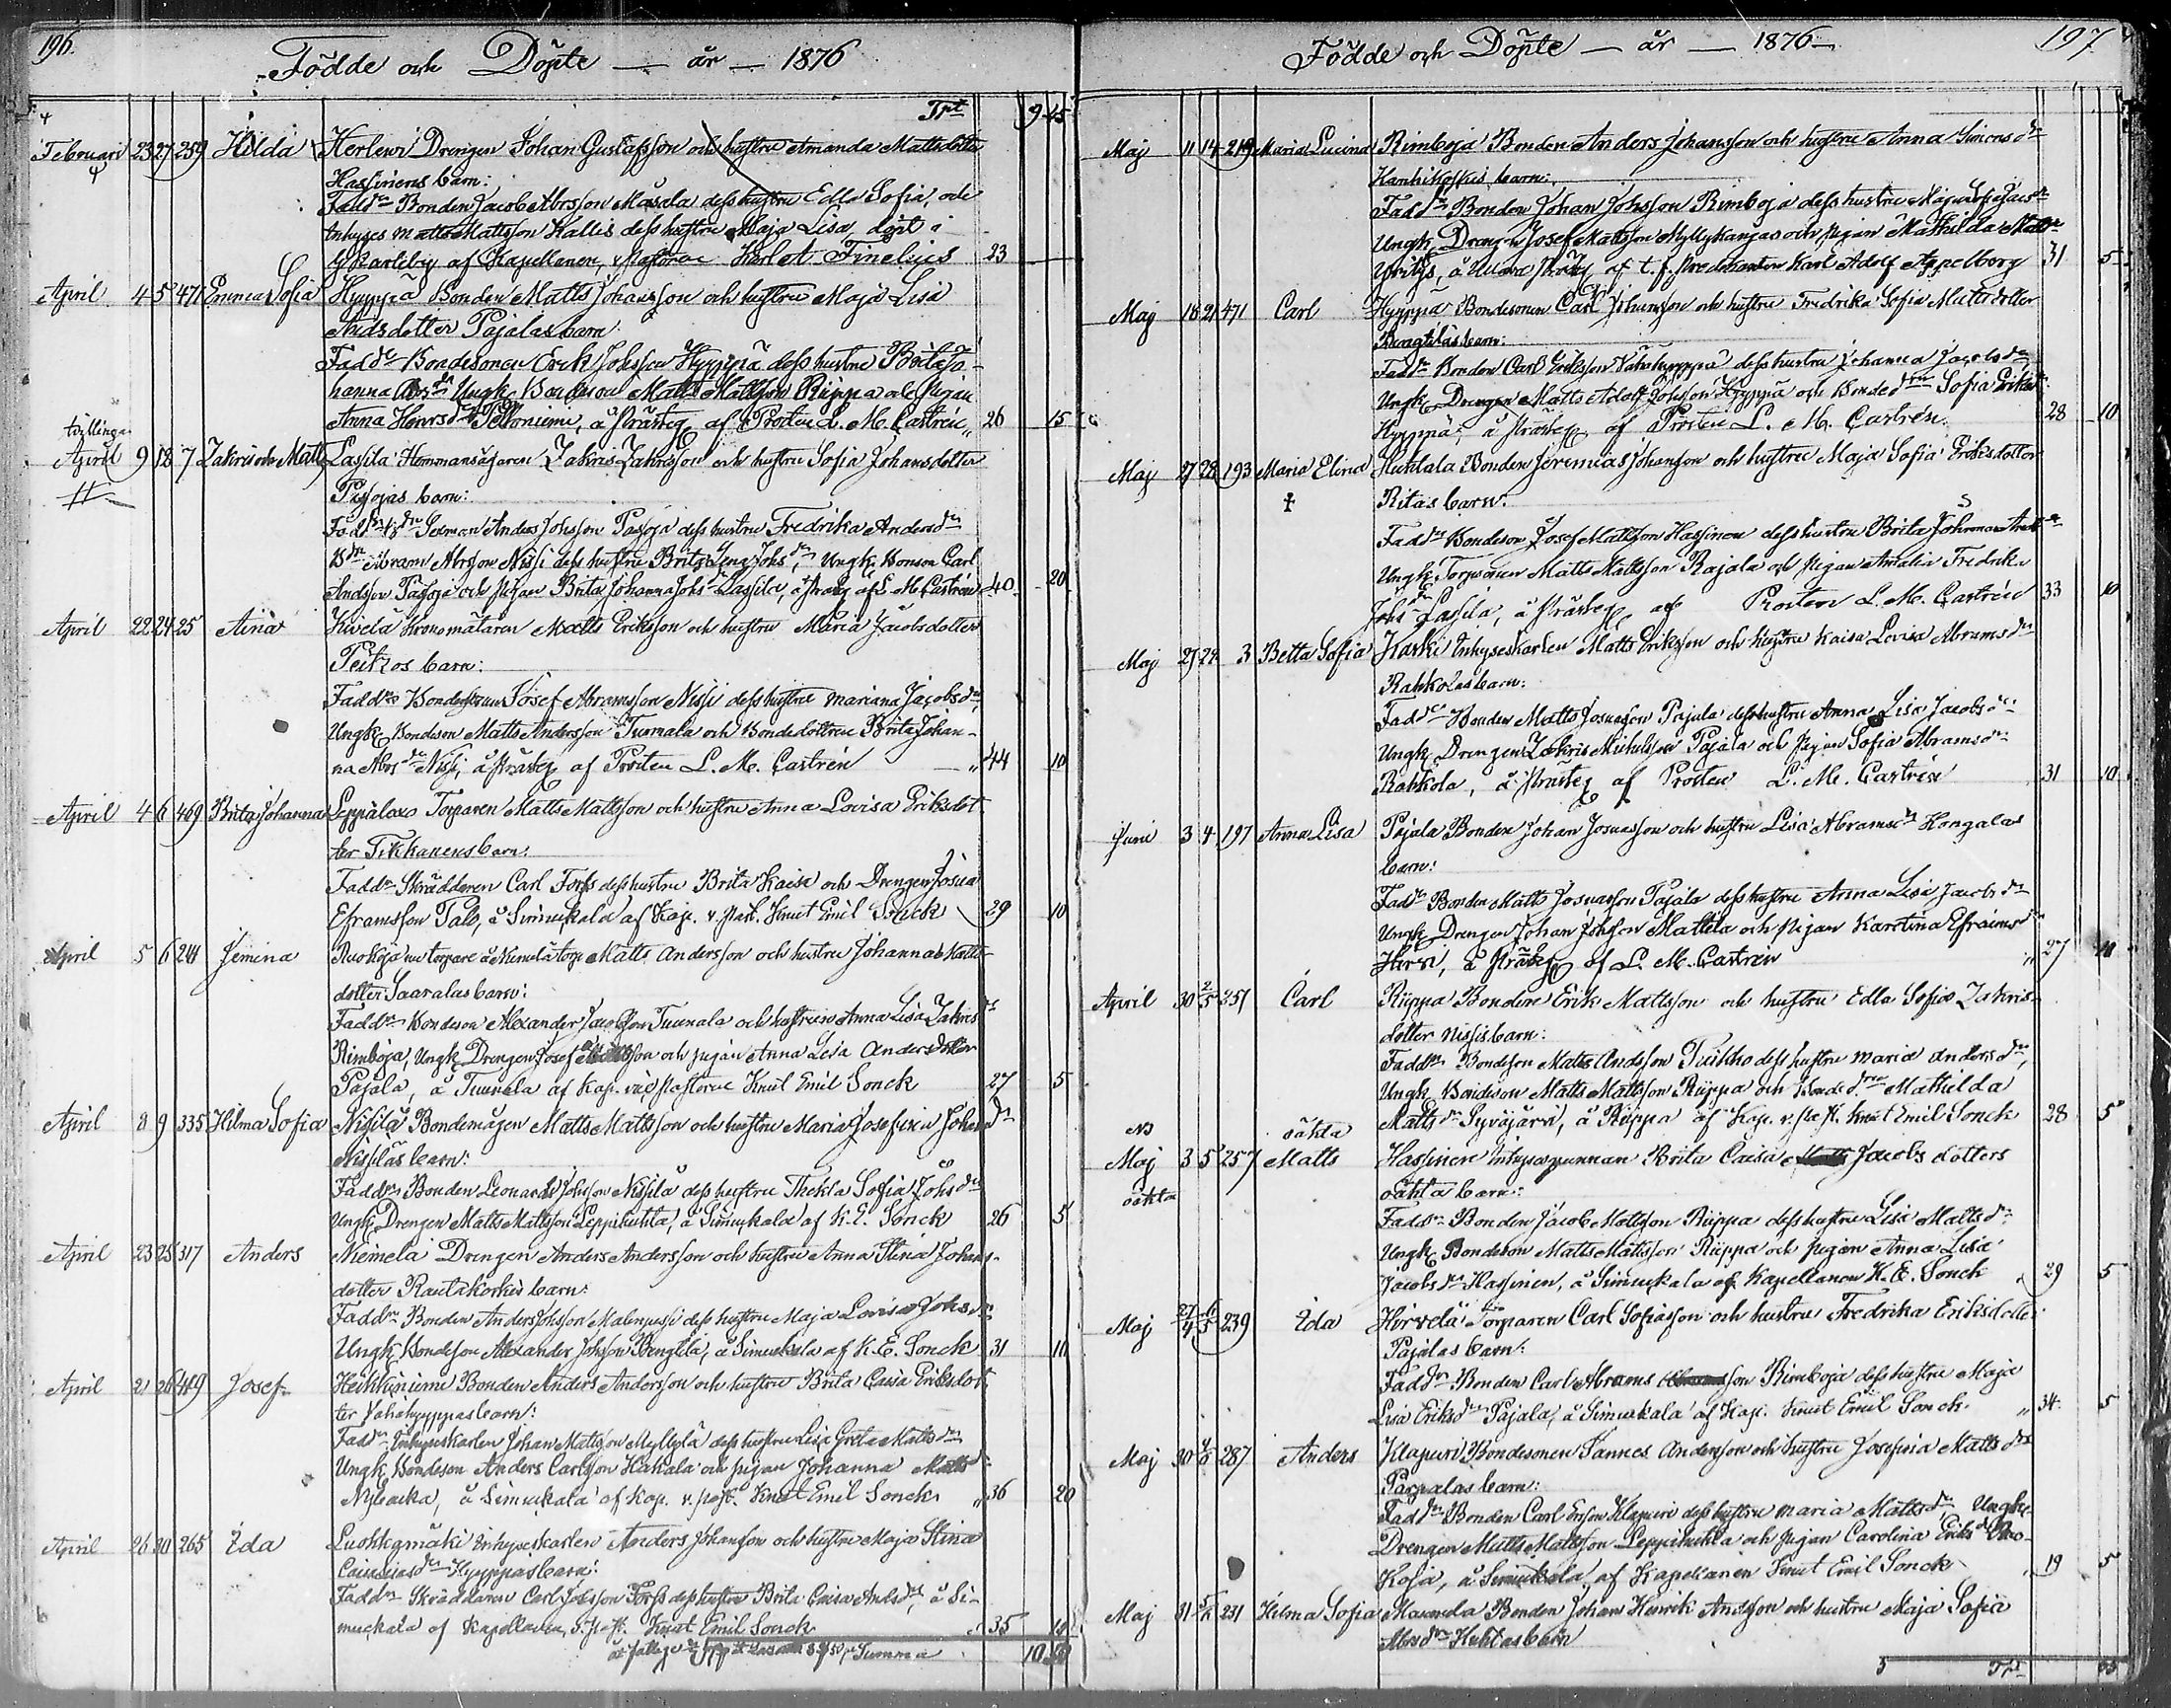 196.
Födde och Döpte — år — 1876
Trt 9 45
Februari 23 27 259 Hilda Herlevi Drengen Johan Gustafsson och hustru Amanda Mattsdotter
Hassinens barn:
Fadd. Bonden Jacob Abrsson Måsala dess hustru Edla Sofia, och
Inhyses Matts Mattsson Kallis dess hustru Maja Lisa, döpt i
af Kapellanen, v. pastorn Karl A. Finelius 23
April 4 5 471 Emma Sofia Hyyppä Bonden Matts Johansson och hustru Maja Lisa
Andsdotter Pajalas barn:
Fadd. Bondesonen Erik Johsson Hyyppä dess hustru Brita Jo-
hanna Ungk. Bondeson Matts Mattsson Riippa och pigan
Anna Henrsdr Pelloniemi, å Prästeg. af Prosten L. M. Castrén „ 26 15
tvillingar
April 9 18 7 Zakris och Matts Lassila Hemmansägaren Zakris Zakrisson och hustru Sofia Johansdotter
Pasojas barn:
Anders Johsson Pasoja dess hustru Fredrika Andersdr
Abram Abrsson Nissi dess hustru Brita Lena Johsdr, Ungk. Bonson Carl
Andsson Pasoja och pigan Brita Johanna Johsdr Lassila, å Prästg. af L. M. Castrén 40 20
April 22 24 25 Aina Kivelä Kronomätaren Matts Eriksson och hustru Maria Jacobsdotter
Peitsos barn:
Fadd. Bondesonen Josef Abramsson Nissi dess hustru Mariana Jacobsdr
Ungk. Bondeson Matts Andersson Tuunala och Bondedottren Brita Johan-
na Abrsdr Nissi, å Prästeg. af Prosten L. M. Castrén „ 44 10
April 4 6 469 Brita Johanna Leppälax Torparen Matts Mattsson och hustru Anna Lovisa Eriksdot-
ter Tikkanens barn:
Fadd. Skräddaren Carl Forss dess hustru Brita Kaisa och Drengen Josua
Eframsson Talo, å Simukala af Kap. v. past. Knut Emil Sonck 29 10
April 5 6 244 Jemina Ruokoja nu torpare å Niemelä torp Matts Andersson och hustru Johanna Matts-
dotter Saaralas barn:
Fadd. Bondeson Alexander Jacobsson Tuunala och hustrun Anna Lisa Zakrisdr
Rimboja, Ungk. Drengen Josef Mattsson och pigan Anna Lisa Andersdotter
Pajala, å Tuunala af Kap. vice pastoren Knut Emil Sonck 27 5
April 8 9 335 Hilma Sofia Nisilä Bondemågen Matts Mattsson och hustru Maria Josefina Johansdr
Nisiläs barn:
Fadd. Bonden Leonard Johsson Nisilä dess hustru Thekla Sofia Johsdr
Ungk. Drengen Matts Mattsson Leppihuhta, å Simukala af K. E. Sonck 26 5
April 23 25 317 Anders Niemelä Drengen Anders Andersson och hustru Anna Stina Johans-
dotter Rautakorkis barn:
Fadd. Bonden Anders Johsson Malenpesi dess hustru Maja Lovisa Johsdr
Ungk. Bondeson Alexander Johsson Bengtila, å Simukala af K. E. Sonck 31 10
April 21 26 489 Josef Heikkiniemi Bonden Anders Andersson och hustru Brita Caisa Eriksdot-
ter Vähähyyppäs barn:
Fadd. Inhyseskarlen Johan Mattsson Myllylä dess hustru Lisa Greta Mattsdr
Ungk. Bondeson Anders Carlsson Hakala och pigan Johanna Mattsdr
Nybacka, å Simukala af Kap. v. past. Knut Emil Sonck „ 36 20
April 26 30 265 Ida Luokkamäki Inhyseskarlen Anders Johansson och hustru Maja Stina
Hyyppäs barn:
Fadd. Skräddaren Carl Johsson Forss dess hustru Brita Caisa Andsdr, å Si-
mukala af Kapellanen, v. past. Knut Emil Sonck 35 10
Summa 10

Födde och Döpte — år — 1876 —
197
Maj 11 14 219 Maria Lucina Rimboja Bonden Anders Johansson och hustru Anna Simonsdr
Kanhikoskis barn:
Fadd. Bonden Johan Johsson Rimboja dess hustru
Ungk. Drengen Josef Mattsson Myllykangas och pigan Mathilda Mattsdr
å Prästg. af t. f. Predikanten Karl Adolf Appelberg 31 5
Maj 18 21 471 Carl Hyyppä Bondesonen Carl Johansson och hustru Fredrika Sofia Mattsdotter
Bengtiläs barn:
Fadd. Bonden Carl Eriksson Vähähyyppä dess hustru Johanna Jacobsdr
Ungk. Drengen Matts Adolf Johsson Hyyppä och Bondedrn Sofia Eriksdr
Hyyppä, å Prästeg. af Prosten L. M. Castrén 28 10
Maj 27 28 193 Maria Elina Huhtala Bonden Jeremias Johansson och hustru Maja Sofia Eriksdotter
Ritas barn:
Fadd. Bondeson Josef Mattsson Hassinen dess hustru Brita Johanna Andsdr
Ungk. Torparen Matts Mattsson Rajala och pigan Amalia Fredrika
Johsdr Lassila, å Prästeg. af Prosten L. M. Castrén 33 10
Maj 27 29 3 Betta Sofia Harki Inhyseskarlen Matts Eriksson och hustru Kaisa Lovisa Abramsdr
Rahkolas barn:
Fadd. Bonden Matts Josuasson Pajala dess hustru Anna Lisa Jacobsdr
Ungk. Drengen Zakris Michelsson Pajala och pigan Sofia Abramsdr
Rahkola, å Prästeg. af Prosten L. M. Castrén 31 10
Juni 3 4 197 Anna Lisa Pajala Bonden Johan Josuasson och hustru Lisa Abramsdr Kangalas
barn:
Fadd. Bonden Matts Josuasson Pajala dess hustru Anna Lisa Jacobsdr
Ungk. Drengen Johan Johsson Mattila och pigan Karolina Efraimsdr
Hirvi, å Prästeg. af L. M. Castrén „ 27 10
April 30 2/5 251 Carl Riippa Bonden Erik Mattsson och hustru Edla Sofia Zakris-
dotter Nissis barn:
Fadd. Bondeson Matts Andsson Tuikko dess hustru Maria Andersdr,
Ungk. Bondeson Matts Mattsson Riippa och Bondedrn Mathilda
Mattsdr Syväjärvi, å Riippa af Kap. v. past. Knut Emil Sonck 28 5
oäkta
Maj 3 5 257 Matts Hassinen Inhysespinnan Brita Caisa Jacobsdotters
oäkta oäkta barn:
Fadd. Bonden Jacob Mattsson Riippa dess hustru Lisa Mattsdr
Ungk. Bondeson Matts Mattsson Riippa och pigan Anna Lisa
Jacobsdr Hassinen, å Simukala af Kapellanen K. E. Sonck 29 5
Maj 27/4 6/5 239 Ida Hirvelä Torparen Carl Sofiasson och hustru Fredrika Eriksdotter
Pajalas barn:
Fadd. Bonden Carl Abrams son Rimboja dess hustru Maja
Lisa Eriksdr Pajala, å Simukala af Kap. Knut Emil Sonck „ 34 5
Maj 30 287 Anders Klapuri Bondesonen Sannes Andersson och hustru Josefina Mattsdr
Parpalas barn:
Fadd. Bonden Carl Ersson Klapuri dess hustru Maria Mattsdr Ungk.
Drengen Matts Mattsson Leppihuhta och pigan Carolina Eriksdr Ruo-
koja, å Simukala, af Kapellanen Knut Emil Sonck 19 5
Maj 31 231 Hilma Sofia Masonela Bonden Johan Henrik Andsson och hustru Maja Sofia
Abrsdr Huhtas barn
Trt